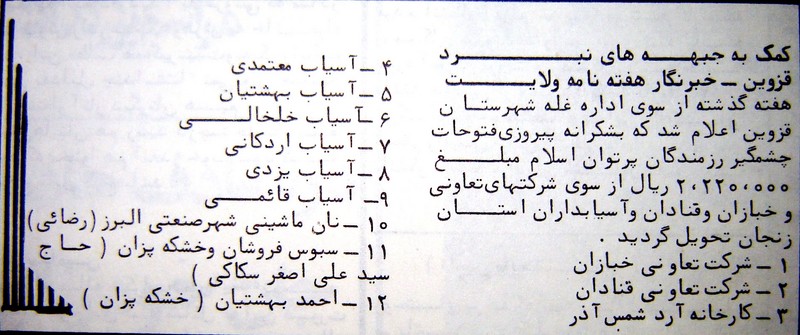 کمک به جبهه های نبرد
قزوین ــ خبرنگار هفته نامه ولایت
هفته گذشته از سوی اداره غله شهرستان
قزوین اعلام شد که بشکرانه پیروزی فتوحات
چشمگیر رزمندگان پرتوان اسلام مبلغ
۲،۲۲۰،۰۰۰ ریال از سوی شرکتهای تعاونی
و خبازان وقنادان وآسیابداران استان
زنجان تحویل گردید .
۱ ــ شرکت تعاونی خبازان
۲ ــ شرکت تعاونی قنادان
۳ ــ کارخانه آرد شمس آذر
۴ ــ آسیاب معتمدی
۵ ــ آسیاب بهشتیان
۶ ــ آسیاب خلخالی
۷ ــ آسیاب اردکانی
۸ ــ آسیاب یزدی
۹ ــ آسیاب قائمی
۱۰ ــ نان ماشینی شهرصنعتی البرز (رضائی)
۱۱ ــ سبوس فروشان وخشکه پزان ( حاج
سید علی اصغر سکاکی )
۱۲ ــ احمد بهشتیان ( خشکه پزان )